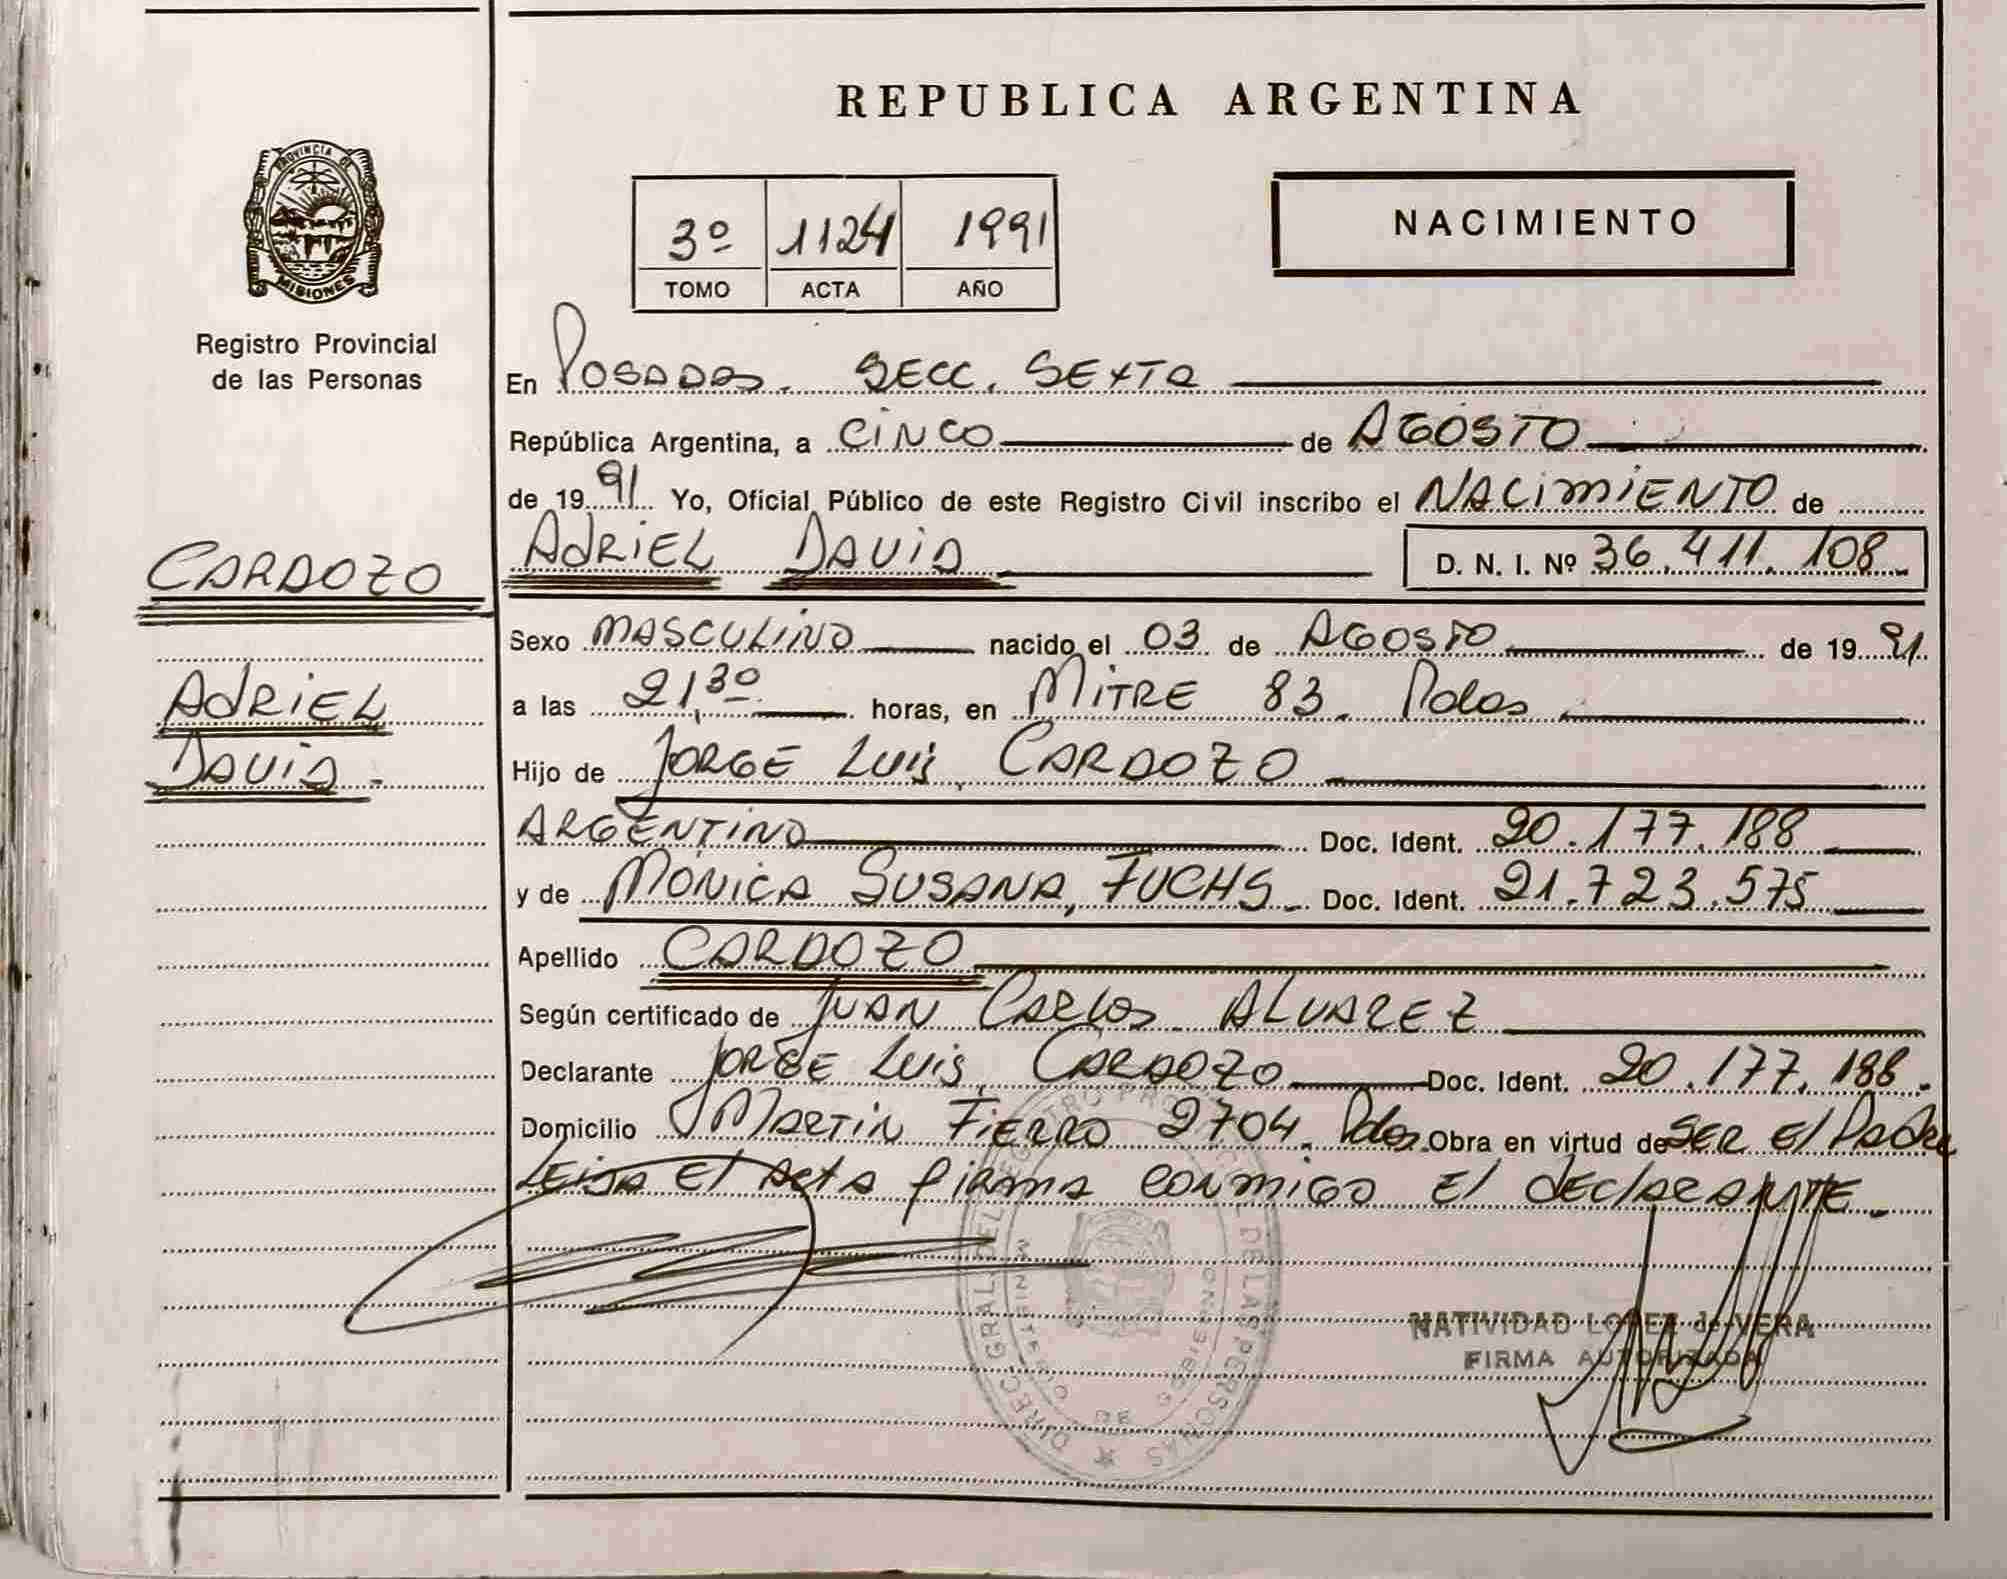 REPUBLICA ARGENTINA
PROVINCIA DE
MISIONES
Registro Provincial
de las Personas
3º 1124 1991
TOMO ACTA AÑO
NACIMIENTO
En Posadas. Secc. Sexta
República Argentina, a CINCO de AGOSTO
de 1991 Yo, Oficial Público de este Registro Civil inscribo el NACIMIENTO de
CARDOZO
ADRIEL DAVID D. N. I. Nº 36.411.108
Sexo MASCULINO nacido el 03 de AGOSTO de 1991.
ADRIEL
DAVID.-
a las 21,30 horas, en MITRE 83. Pdas.
Hijo de JORGE LUIS, CARDOZO
ARGENTINO Doc. Ident. 20.177.188
y de MONICA SUSANA, FUCHS Doc. Ident. 21.723.575
Apellido CARDOZO
Según certificado de JUAN CARLOS ALVAREZ
Declarante JORGE LUIS, CARDOZO Doc. Ident. 20.177.188.
Domicilio MARTIN FIERRO 2704. Pdas. Obra en virtud de SER El Padre
LEIDA El Acta firma conmigo El declarante.
DIREC. GRAL. DEL REGISTRO DE LAS PERSONAS
NATIVIDAD LOPEZ de VERA
FIRMA AUTORIZADA